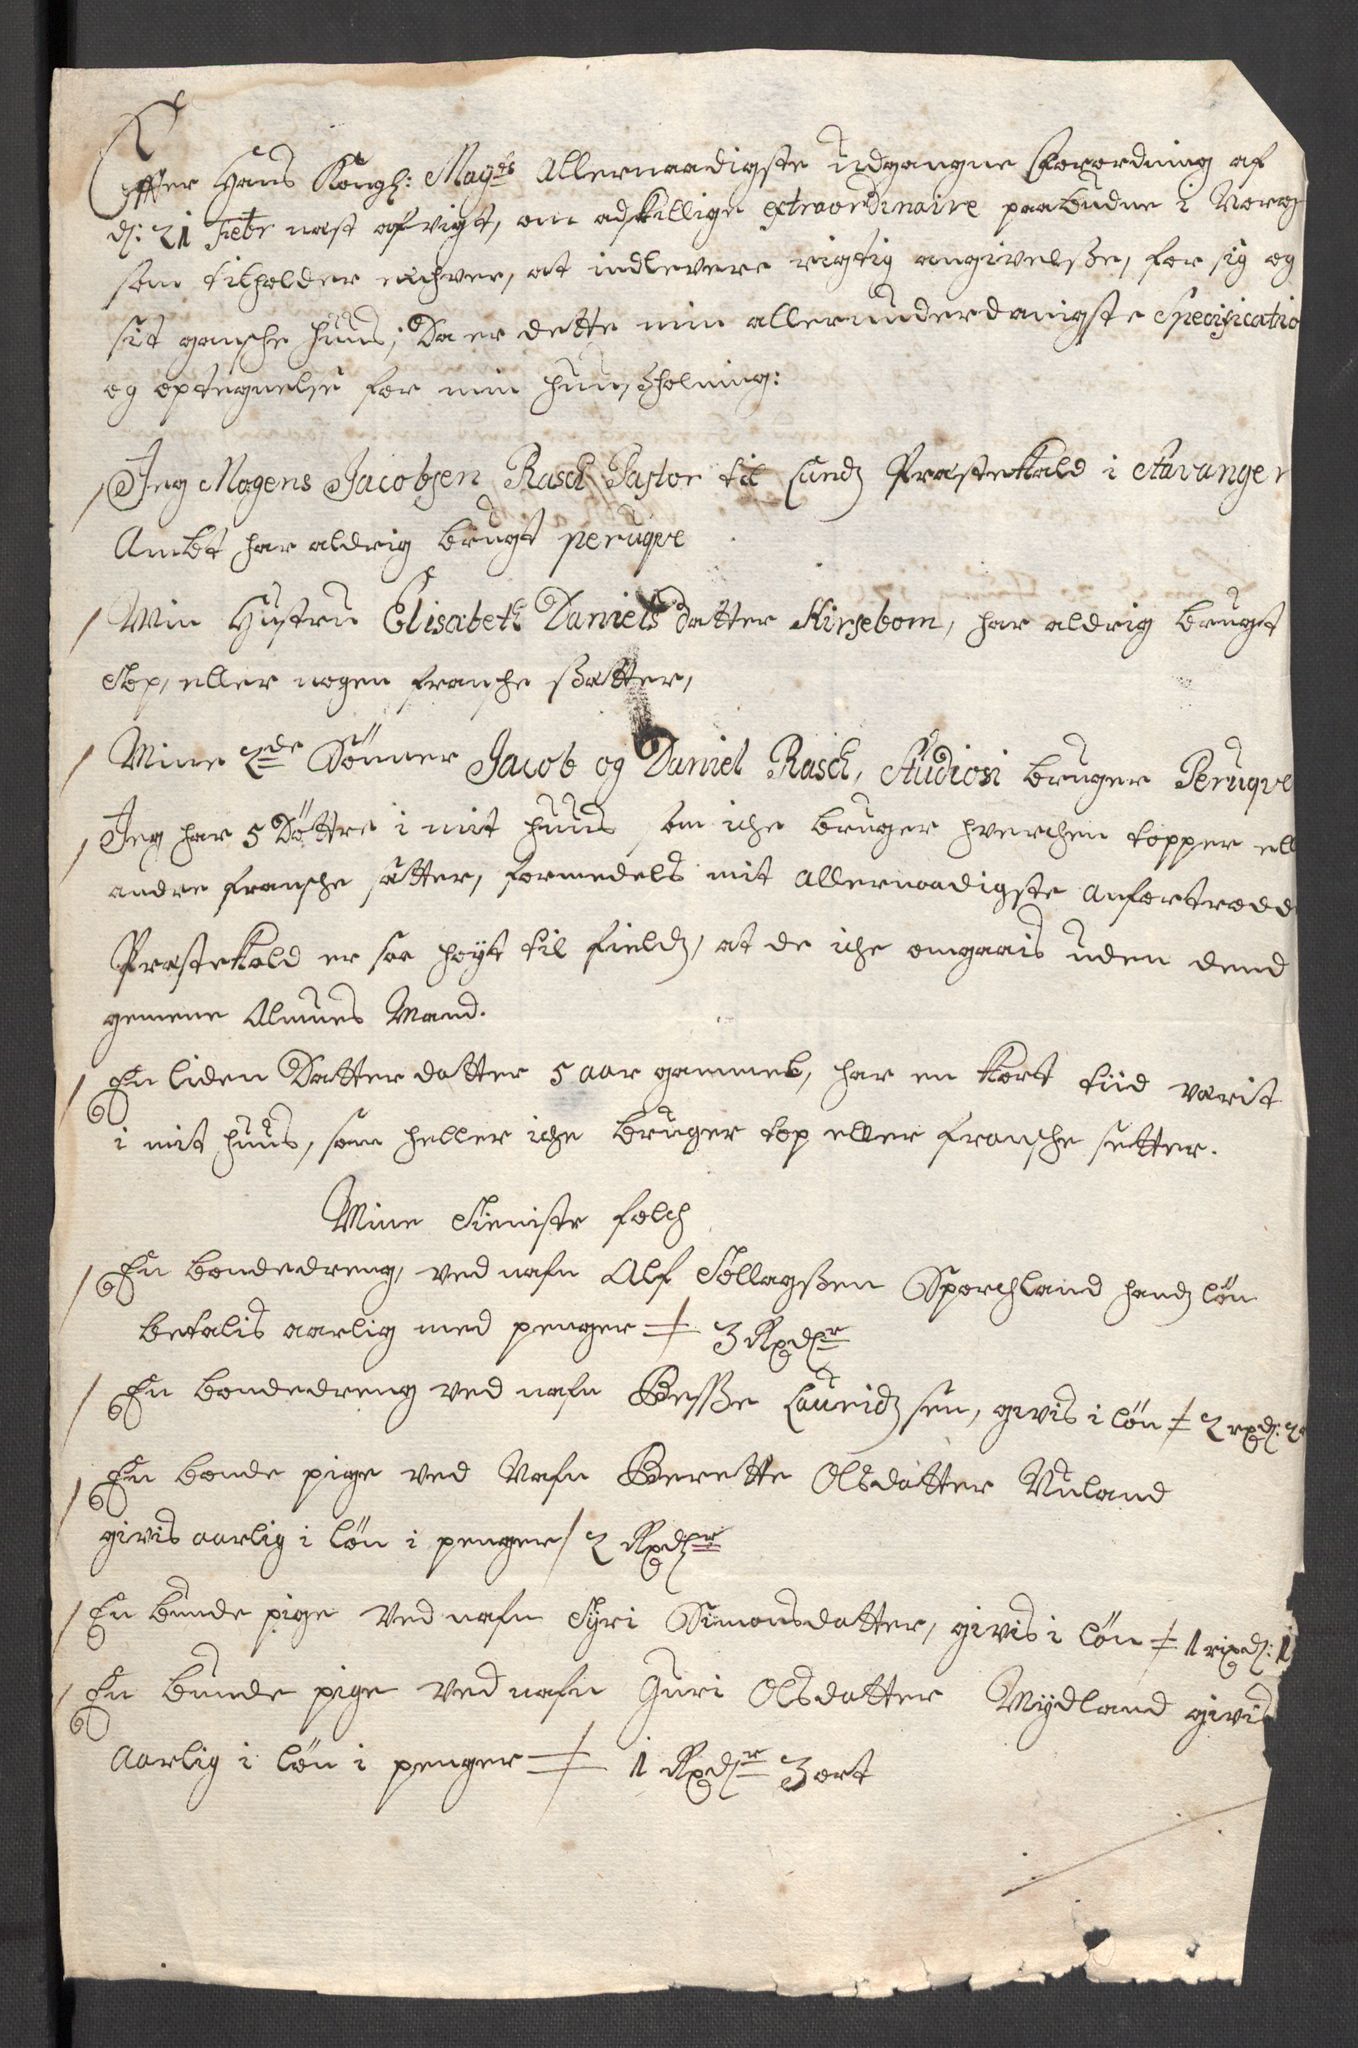 Effter Hans Kongl: Mayts Allernaadigste udgangne Forordning af
d: 21 Febr nast afvigt, om adskillige extraordinaire paabudne i Norge
som tilholder enhver, at indlevere rigtig angivelsse, for sig og
sit gansche huus; Da er dette min allerunderdanigste Specificatio
og optegnelse for min huusholning:
Jeg Mogens Jacobsen Rasch Pastor til Lundz Præstekald i Stavanger
Ambt har aldrig brugt peruqve
Min Hustru Elisabeth Danielsdatter Kirsebom, har aldrig bruget
Top, eller nogen fransche sætter,
Mine 2de Sønner Jacob og Daniel Rasch, Studiosi bruger Peruqve
Jeg har 5 Døttre i mit huus som iche bruger hverchen topper ell
andre fransche sætter, formedels mit allernaadigste anfortroedde
Præstekald er saa høyt til fieldz, at de iche omgaais uden dend
gemene Almues Mand.
En liden Datterdatter 5 aar gammel, har en kort tiid værit
i mit huus, som heller iche bruger top eller fransche setter.
Mine Tieniste folch
En bondedreng, ved nafn Alf Tollagssen Sporchland handz løn
betalis aarlig med penger 3 Rixdlr
En bondedreng ved nafn Gesse Lauridzsen, givis i løn 2 rixd: 2
En bonde pige ved Nafn Berette Olsdatter Nuland
givis aarlig i løn i penger 2 Rixdlr
En bunde pige Ved nafn Syri Simonsdatter, givis i løn 1 rixd: 1
En bunde pige ved nafn Guri Olsdatter Mydland givis
Aarlig i løn i penger 1 Rixdlr 3 ort